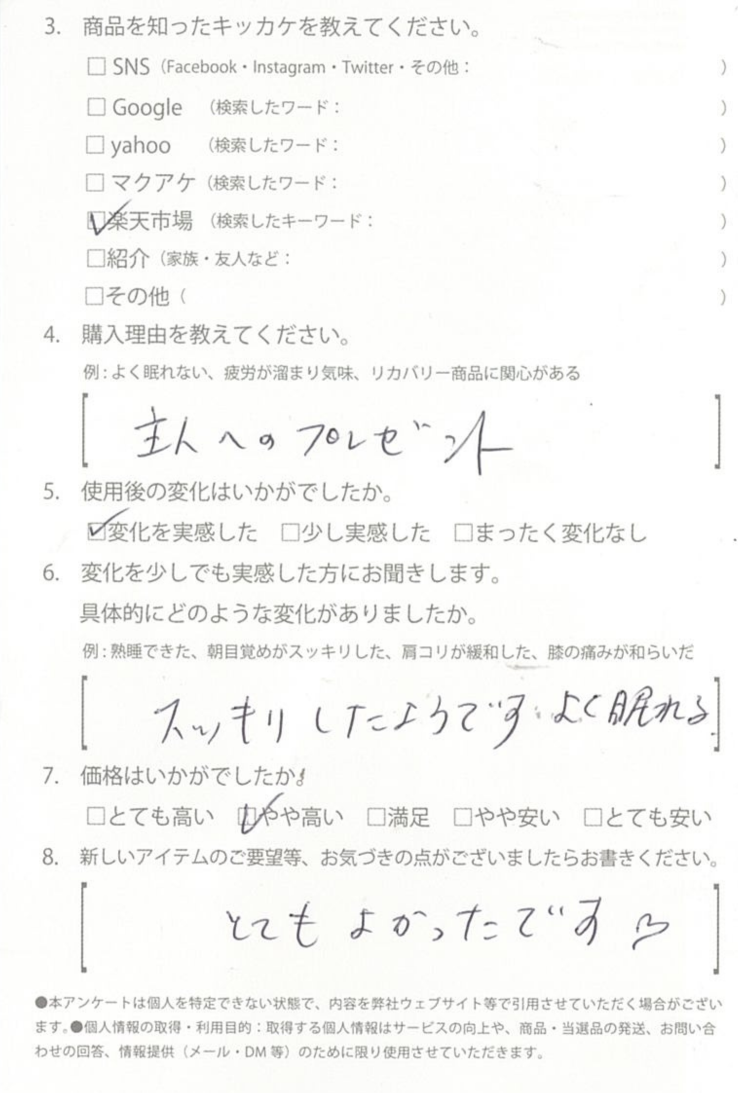 3. 商品を知ったキッカケを教えてください。
□ SNS（Facebook・Instagram・Twitter・その他： ）
□ Google （検索したワード： ）
□ yahoo （検索したワード： ）
□ マクアケ（検索したワード： ）
☑楽天市場（検索したキーワード： ）
□紹介（家族・友人など： ）
□その他（ ）
4. 購入理由を教えてください。
例：よく眠れない、疲労が溜まり気味、リカバリー商品に関心がある
主人へのプレゼント
5. 使用後の変化はいかがでしたか。
☑変化を実感した □少し実感した □まったく変化なし
6. 変化を少しでも実感した方にお聞きします。
具体的にどのような変化がありましたか。
例：熟睡できた、朝目覚めがスッキリした、肩コリが緩和した、膝の痛みが和らいだ
スッキリしたようです。よく眠れる。
7. 価格はいかがでしたか。
□とても高い ☑やや高い □満足 □やや安い □とても安い
8. 新しいアイテムのご要望等、お気づきの点がございましたらお書きください。
とてもよかったです♡
●本アンケートは個人を特定できない状態で、内容を弊社ウェブサイト等で引用させていただく場合がござい
ます。●個人情報の取得・利用目的：取得する個人情報はサービスの向上や、商品・当選品の発送、お問い合
わせの回答、情報提供（メール・DM 等）のために限り使用させていただきます。